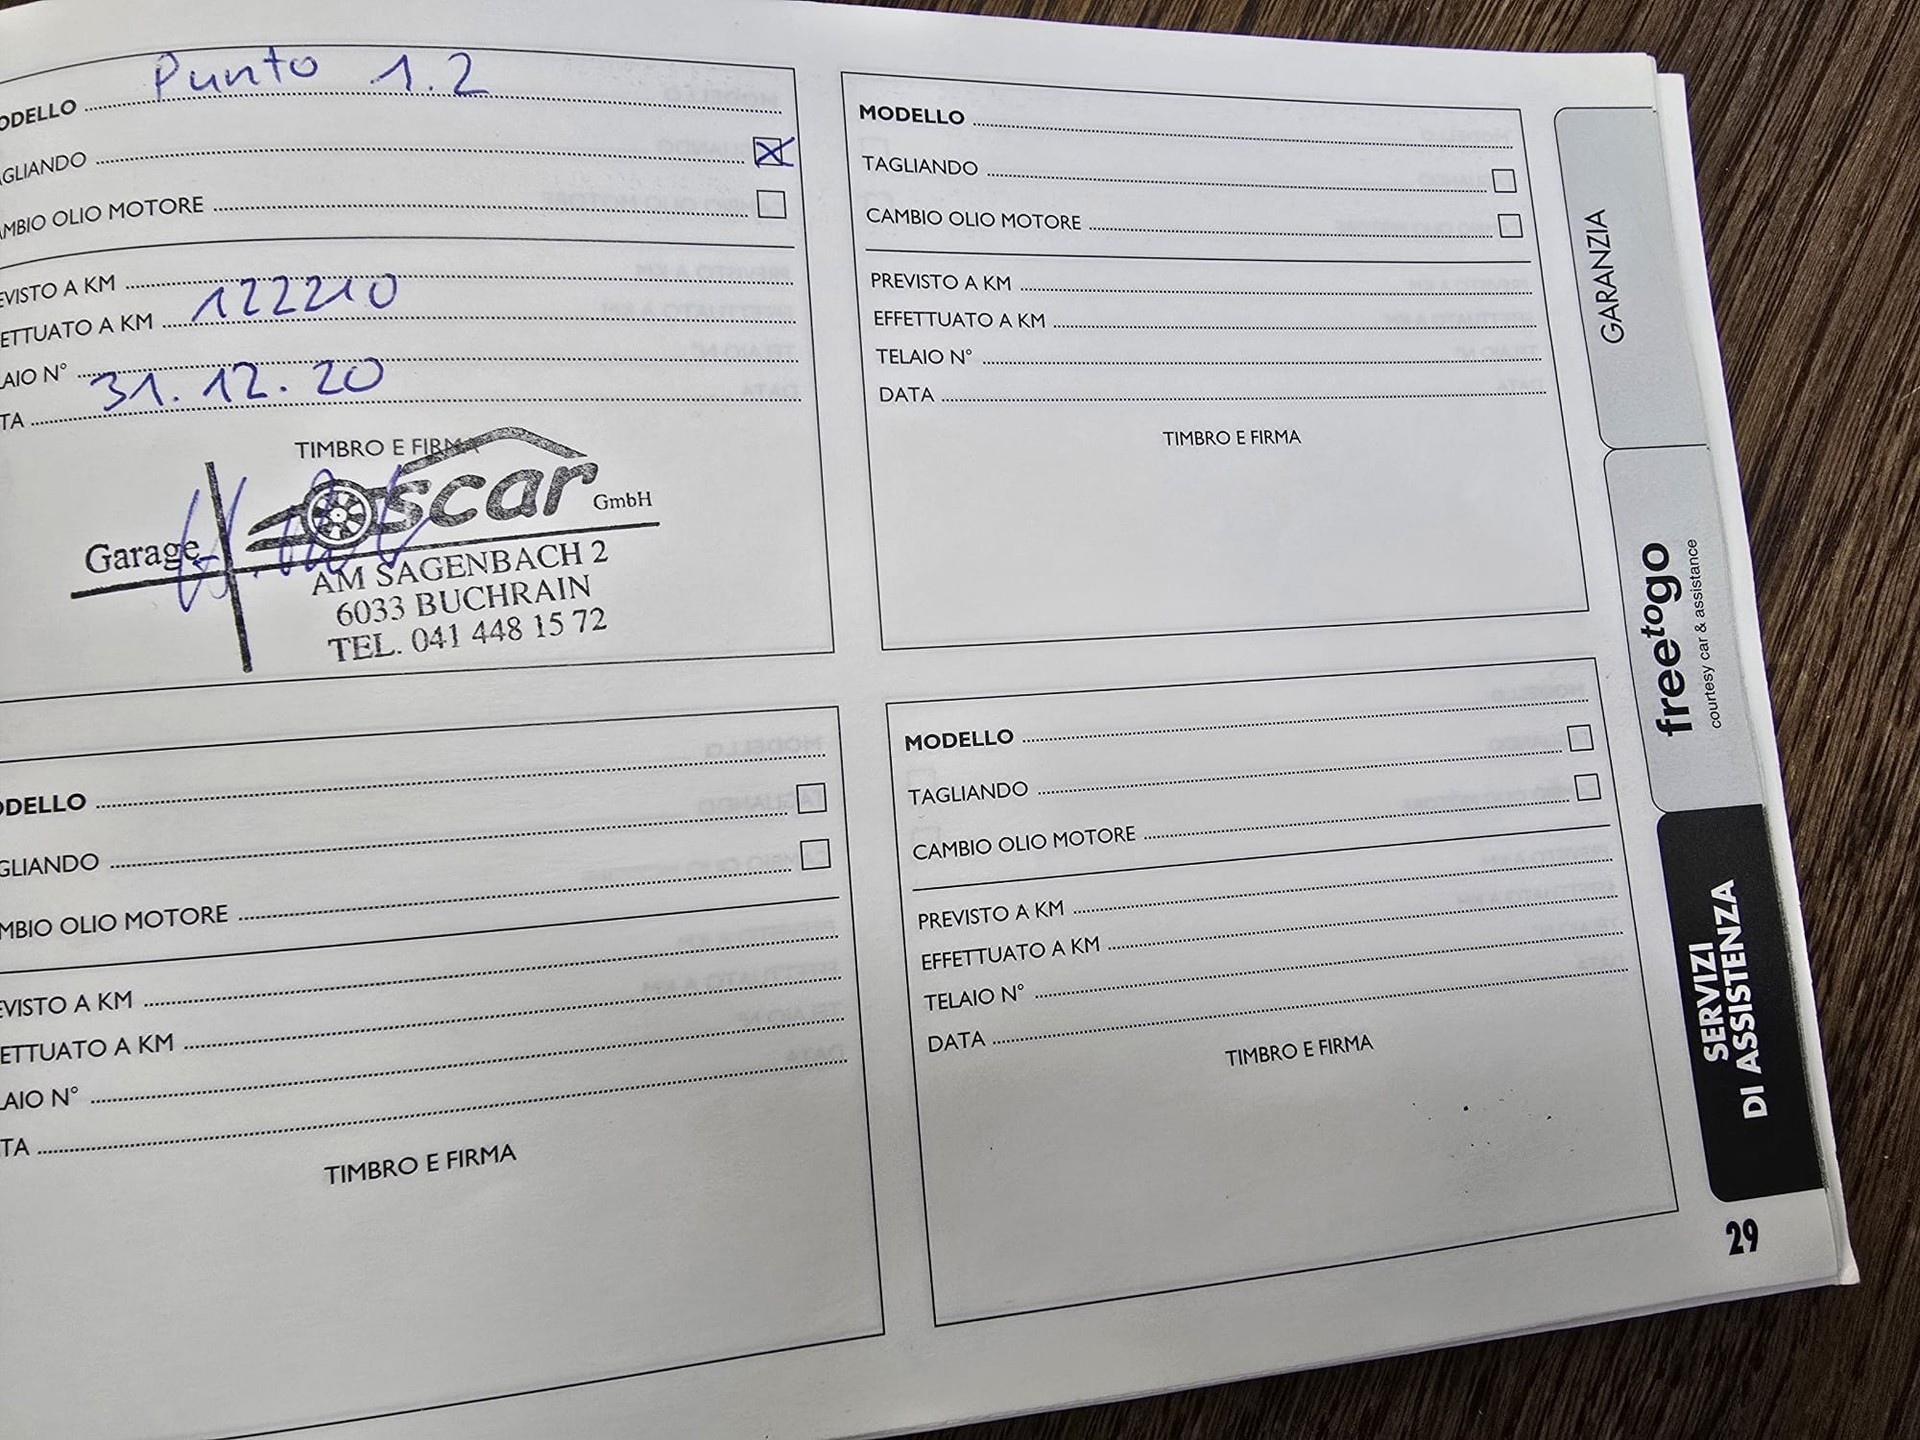 Punto 1.2
ODELLO
AGLIANDO
AMBIO OLIO MOTORE
EVISTO A KM
122210
ETTUATO A KM
LAIO N°
31.12.20
TA
TIMBRO E FIRMA
Garage Oscar GmbH
AM SAGENBACH 2
6033 BUCHRAIN
TEL. 041 448 15 72
MODELLO
TAGLIANDO
CAMBIO OLIO MOTORE
PREVISTO A KM
EFFETTUATO A KM
TELAIO N°
DATA
TIMBRO E FIRMA
ODELLO
GLIANDO
MBIO OLIO MOTORE
EVISTO A KM
ETTUATO A KM
LAIO N°
TA
TIMBRO E FIRMA
MODELLO
TAGLIANDO
CAMBIO OLIO MOTORE
PREVISTO A KM
EFFETTUATO A KM
TELAIO N°
DATA
TIMBRO E FIRMA
GARANZIA
freetogo
courtesy car & assistance
SERVIZI
DI ASSISTENZA
29